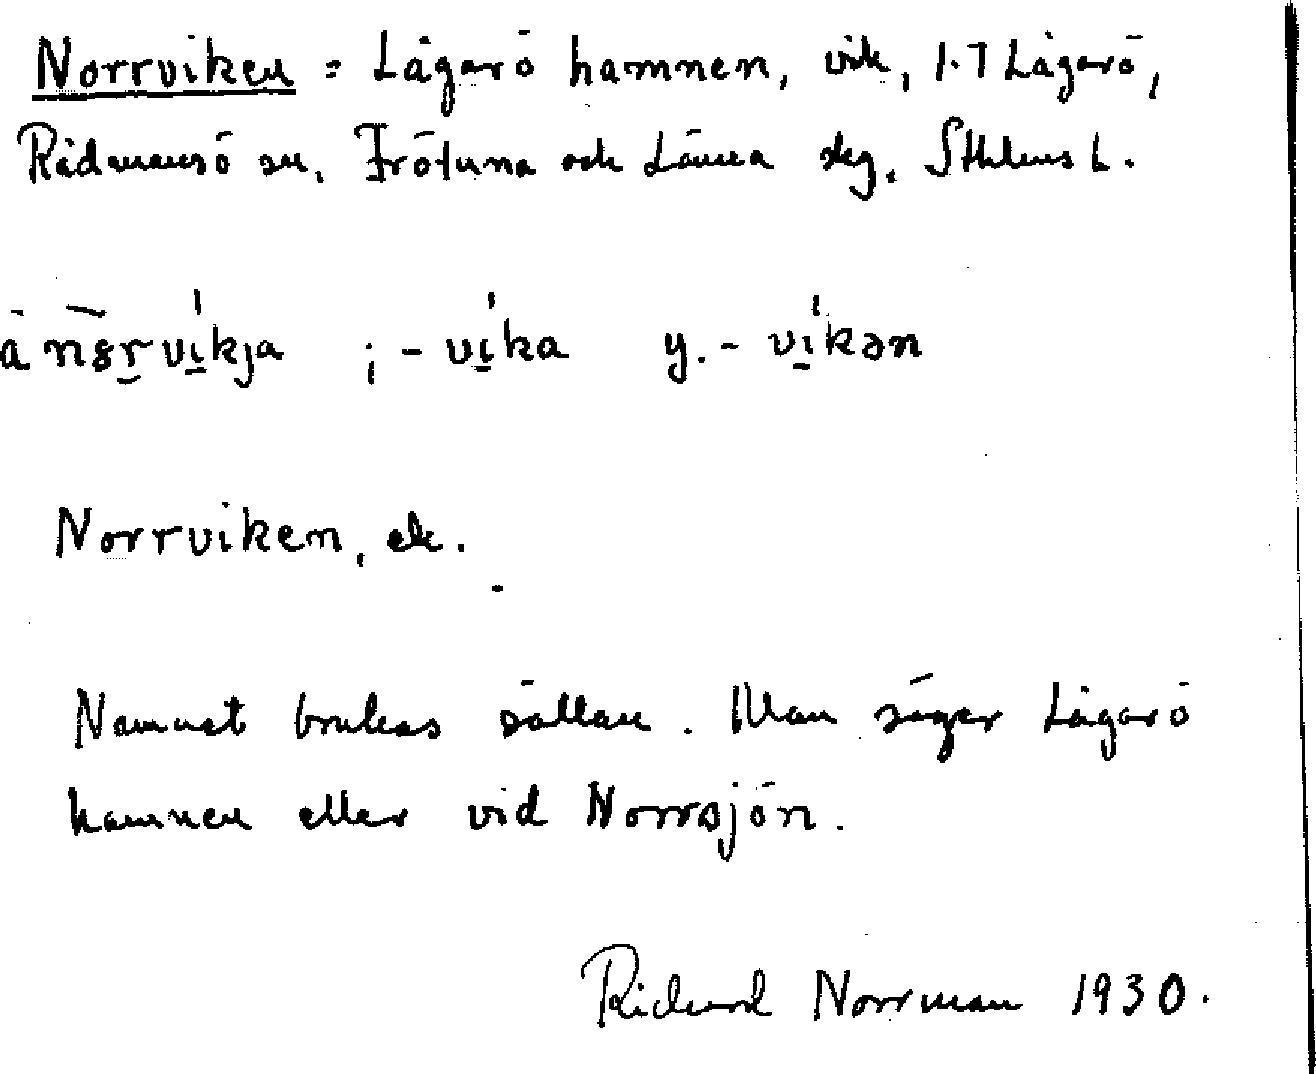 Norrviken = Lågarö hamnen, vik, 1.7 Lågarö,
Rådmansö sn, Frötuna och Länna skg, Sthlms L.
å nɷrvikja ; - vika y. - vikən
Norrviken, ek.
Namnet brukas sällan. Man säger Lågarö
hamnen eller vid Norrsjön.
Richard Norrman 1930.